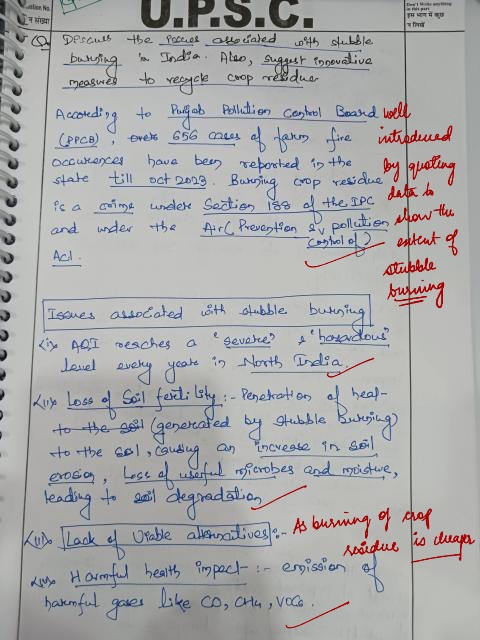 U.P.S.C.
Question No.
न संख्या
Don't Write anything
in this part
इस भाग में कुछ
न लिखें
Q. Discuss the issues associated with stubble
burning in India. Also, suggest innovative
measures to recycle crop residue
According to Punjab Pollution Control Board
(PPCB), over 656 cases of farm fire
occurences have been reported in the
state till oct 2023. Burning crop residue
is a crime under Section 188 of the IPC
and under the Air (Prevention & pollution
control of)
Act.
well
introduced
by quoting
data to
show the
extent of
stubble
burning
Issues associated with stubble burning
(i) AQI reaches a "severe" & "hazardous"
level every year in North India.
(ii) Loss of Soil fertility :- Penetration of heat
to the soil (generated by stubble burning)
to the soil, causing an increase in soil
erosion, Loss of useful microbes and moisture,
leading to soil degradation
(iii) Lack of Viable alternatives :- As burning of crop
residue is cheaper
(iv) Harmful health impact :- emission of
harmful gases like CO, CH4, VOCs.